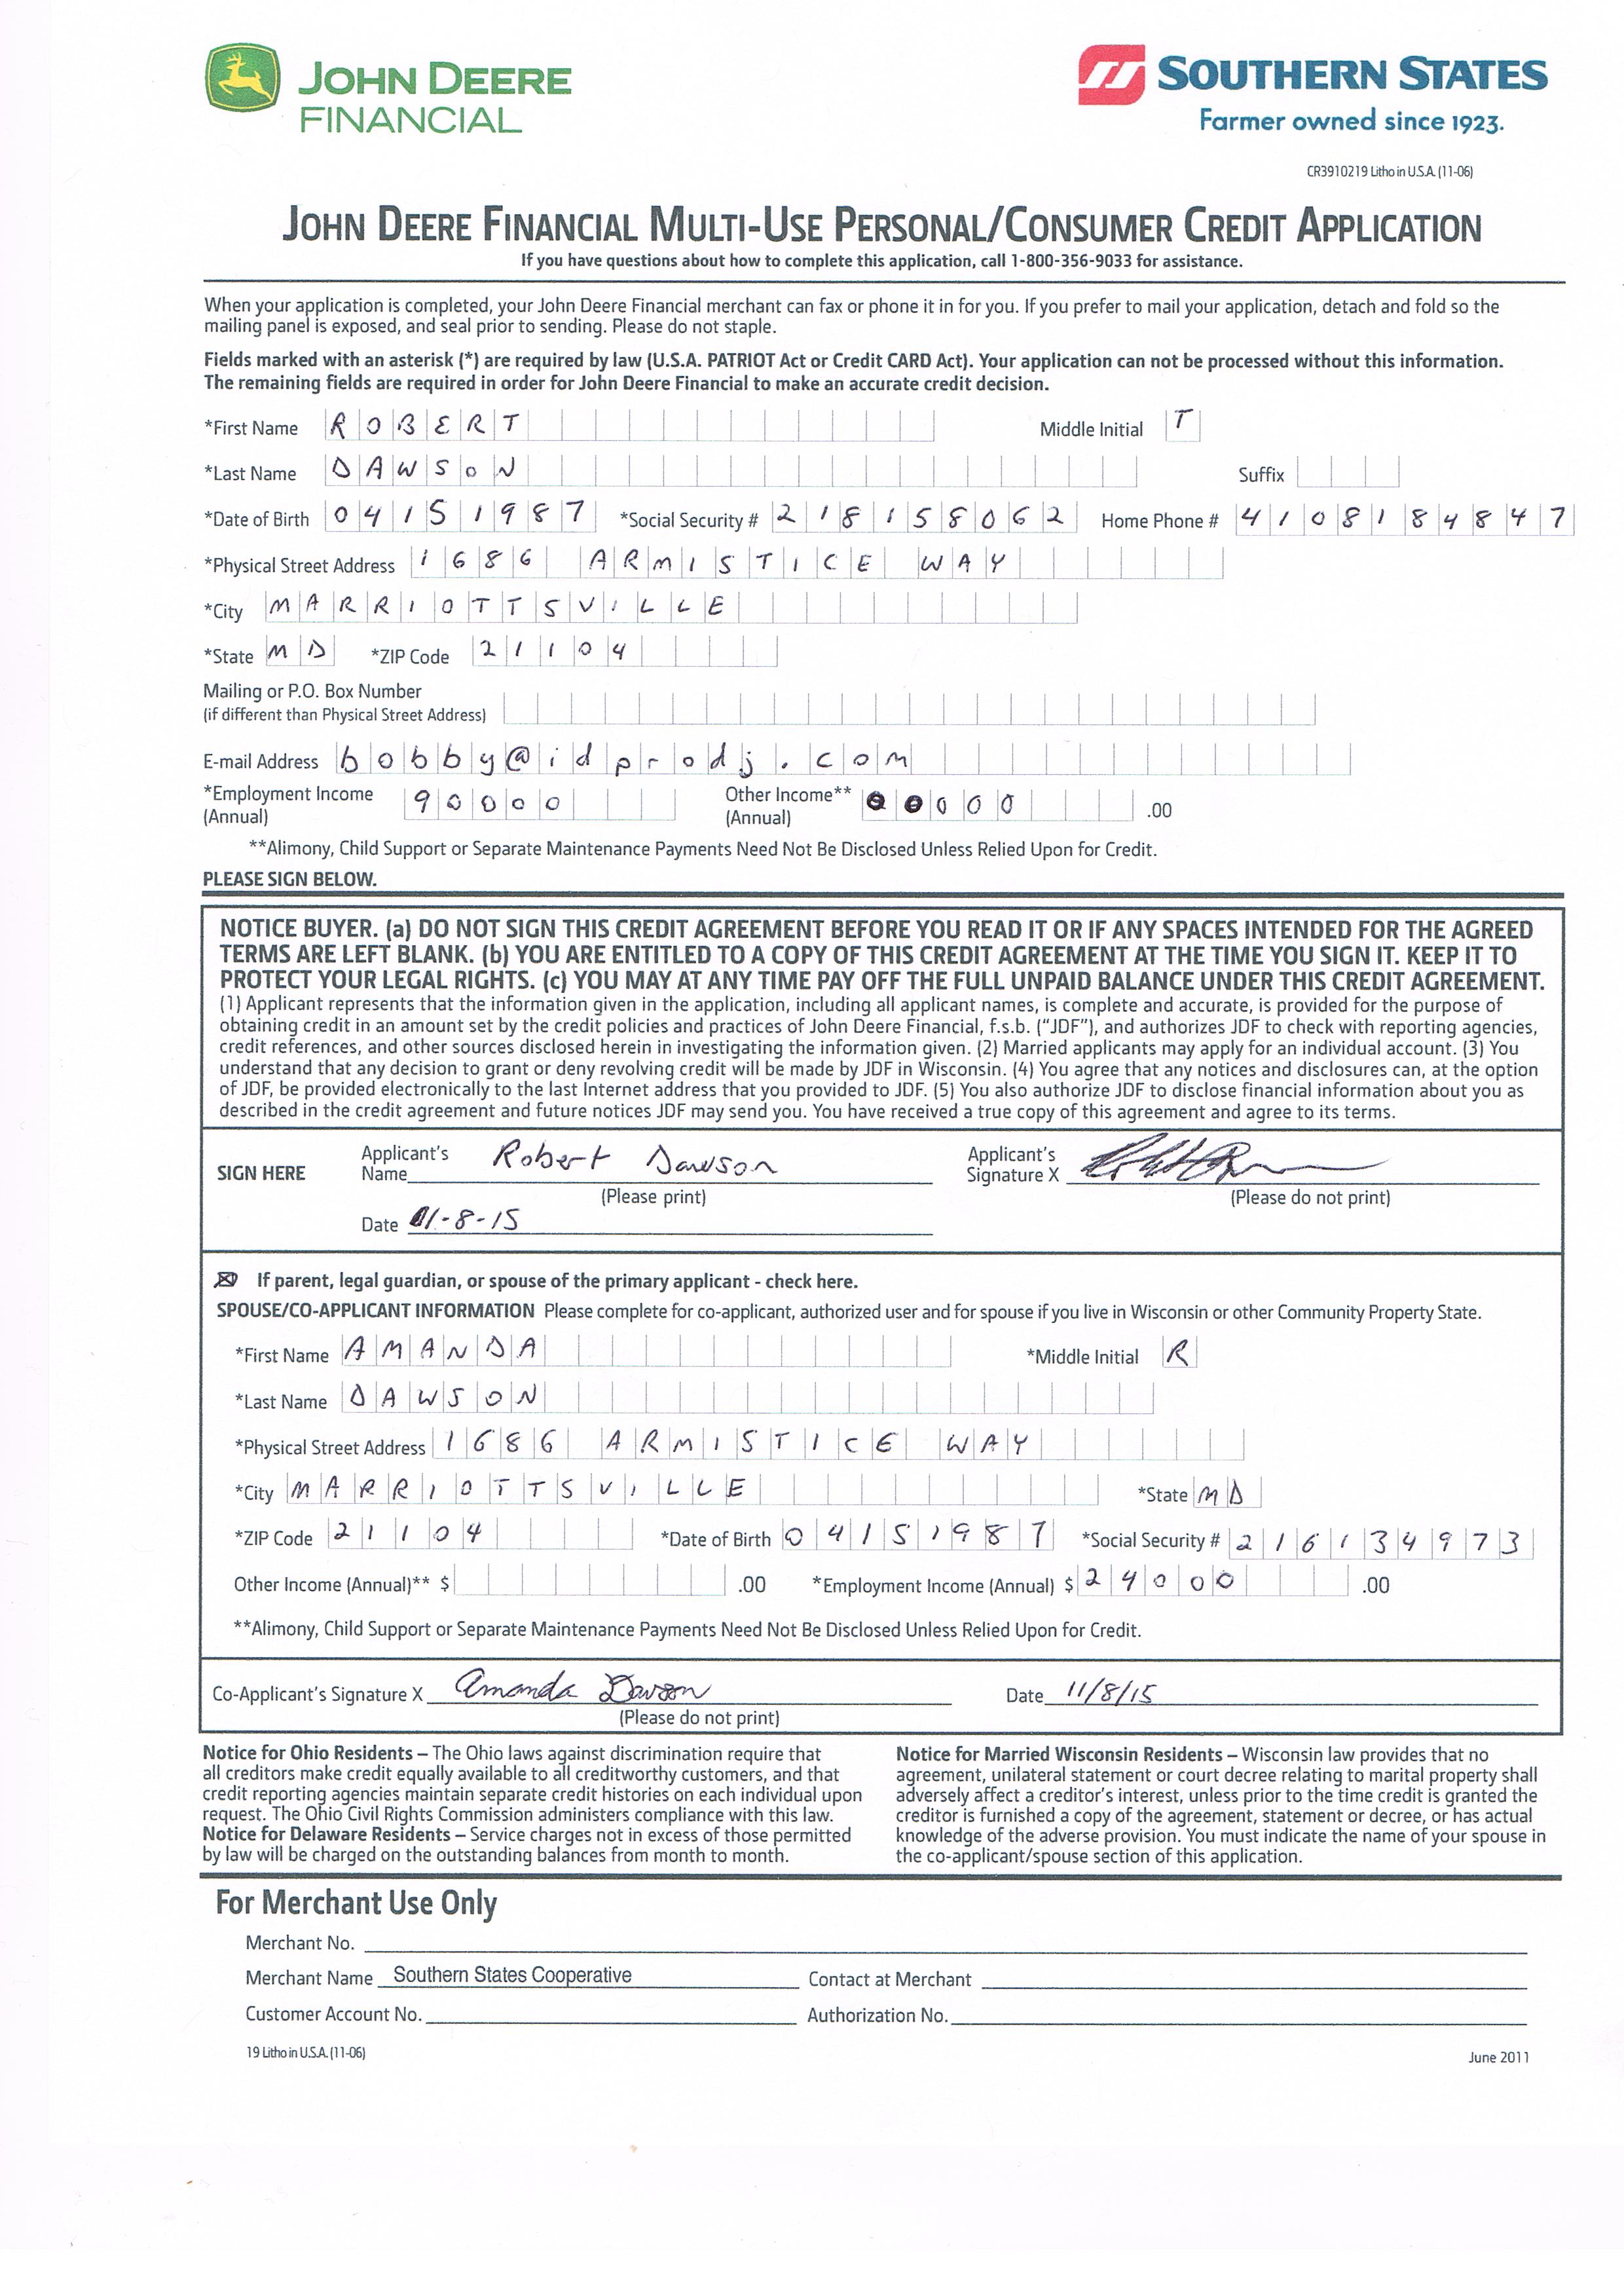 JOHN DEERE
FINANCIAL
SOUTHERN STATES
Farmer owned since 1923.
CR3910219 Litho in U.S.A. (11-06)
JOHN DEERE FINANCIAL MULTI-USE PERSONAL/CONSUMER CREDIT APPLICATION
If you have questions about how to complete this application, call 1-800-356-9033 for assistance.
When your application is completed, your John Deere Financial merchant can fax or phone it in for you. If you prefer to mail your application, detach and fold so the
mailing panel is exposed, and seal prior to sending. Please do not staple.
Fields marked with an asterisk (*) are required by law (U.S.A. PATRIOT Act or Credit CARD Act). Your application can not be processed without this information.
The remaining fields are required in order for John Deere Financial to make an accurate credit decision.
*First Name ROBERT Middle Initial T
*Last Name DAWSoN Suffix
*Date of Birth 04151987 *Social Security # 218158062 Home Phone # 4108184847
*Physical Street Address 1686 ARMISTICE WAY
*City MARRIOTTSVILLE
*State MD *ZIP Code 21104
Mailing or P.O. Box Number
(if different than Physical Street Address)
E-mail Address bobby@idprodj.com
*Employment Income (Annual) 90000 Other Income** (Annual) 00000 .00
**Alimony, Child Support or Separate Maintenance Payments Need Not Be Disclosed Unless Relied Upon for Credit.
PLEASE SIGN BELOW.
NOTICE BUYER. (a) DO NOT SIGN THIS CREDIT AGREEMENT BEFORE YOU READ IT OR IF ANY SPACES INTENDED FOR THE AGREED
TERMS ARE LEFT BLANK. (b) YOU ARE ENTITLED TO A COPY OF THIS CREDIT AGREEMENT AT THE TIME YOU SIGN IT. KEEP IT TO
PROTECT YOUR LEGAL RIGHTS. (c) YOU MAY AT ANY TIME PAY OFF THE FULL UNPAID BALANCE UNDER THIS CREDIT AGREEMENT.
(1) Applicant represents that the information given in the application, including all applicant names, is complete and accurate, is provided for the purpose of
obtaining credit in an amount set by the credit policies and practices of John Deere Financial, f.s.b. (“JDF”), and authorizes JDF to check with reporting agencies,
credit references, and other sources disclosed herein in investigating the information given. (2) Married applicants may apply for an individual account. (3) You
understand that any decision to grant or deny revolving credit will be made by JDF in Wisconsin. (4) You agree that any notices and disclosures can, at the option
of JDF, be provided electronically to the last Internet address that you provided to JDF. (5) You also authorize JDF to disclose financial information about you as
described in the credit agreement and future notices JDF may send you. You have received a true copy of this agreement and agree to its terms.
SIGN HERE Applicant's Name Robert Dawson Applicant's Signature X
(Please print) (Please do not print)
Date 11-8-15
If parent, legal guardian, or spouse of the primary applicant - check here.
SPOUSE/CO-APPLICANT INFORMATION Please complete for co-applicant, authorized user and for spouse if you live in Wisconsin or other Community Property State.
*First Name AMANDA *Middle Initial R
*Last Name DAWSON
*Physical Street Address 1686 ARMISTICE WAY
*City MARRIOTTSVILLE *State MD
*ZIP Code 21104 *Date of Birth 04151987 *Social Security # 216134973
Other Income (Annual)** $ .00 *Employment Income (Annual) $ 24000 .00
**Alimony, Child Support or Separate Maintenance Payments Need Not Be Disclosed Unless Relied Upon for Credit.
Co-Applicant's Signature X Amanda Dawson Date 11/8/15
(Please do not print)
Notice for Ohio Residents – The Ohio laws against discrimination require that
all creditors make credit equally available to all creditworthy customers, and that
credit reporting agencies maintain separate credit histories on each individual upon
request. The Ohio Civil Rights Commission administers compliance with this law.
Notice for Delaware Residents – Service charges not in excess of those permitted
by law will be charged on the outstanding balances from month to month.
Notice for Married Wisconsin Residents – Wisconsin law provides that no
agreement, unilateral statement or court decree relating to marital property shall
adversely affect a creditor's interest, unless prior to the time credit is granted the
creditor is furnished a copy of the agreement, statement or decree, or has actual
knowledge of the adverse provision. You must indicate the name of your spouse in
the co-applicant/spouse section of this application.
For Merchant Use Only
Merchant No.
Merchant Name Southern States Cooperative Contact at Merchant
Customer Account No. Authorization No.
19 Litho in U.S.A. (11-06)
June 2011